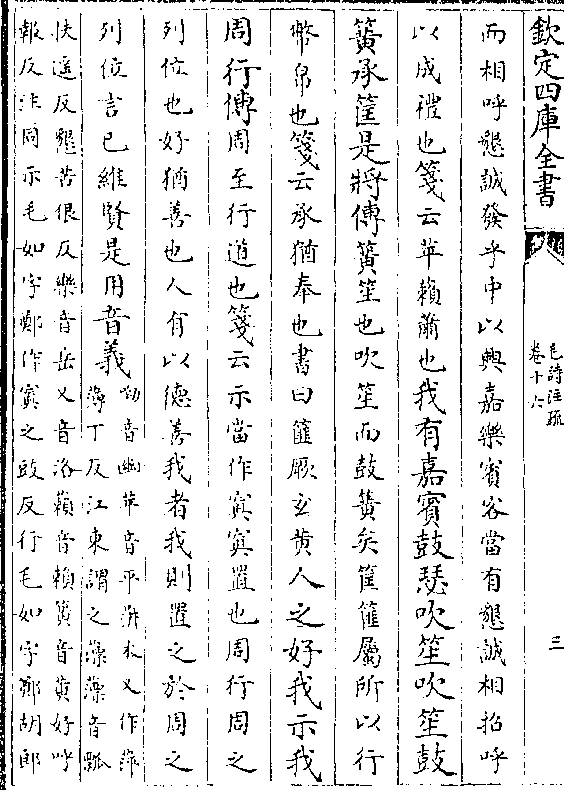 欽定四庫全書
毛詩注疏
卷十六
三
而相呼懇誠發乎中以興嘉樂賓客當有懇誠相招呼
以成禮也箋云苹藾蕭也我有嘉賓鼓瑟吹笙吹笙鼓
簧承筐是將傳簧笙也吹笙而鼓簧矣筐篚屬所以行
幣帛也箋云承猶奉也書曰篚厥玄黄人之好我示我
周行傳周至行道也箋云示當作寘寘置也周行周之
列位也好猶善也人有以德善我者我則置之於周之
列位言已維賢是用音義呦音幽苹音平蓱本又作萍
薄丁反江東謂之薸薸音瓢
快遥反懇苦很反樂音岳又音洛藾音賴簧音黄好呼
報反注同示毛如字鄭作寘之豉反行毛如字鄭胡郎